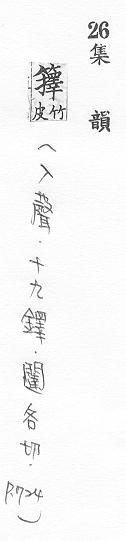 26
集韻
籜
竹
皮
(入聲．十九鐸．闥各切．P.724)